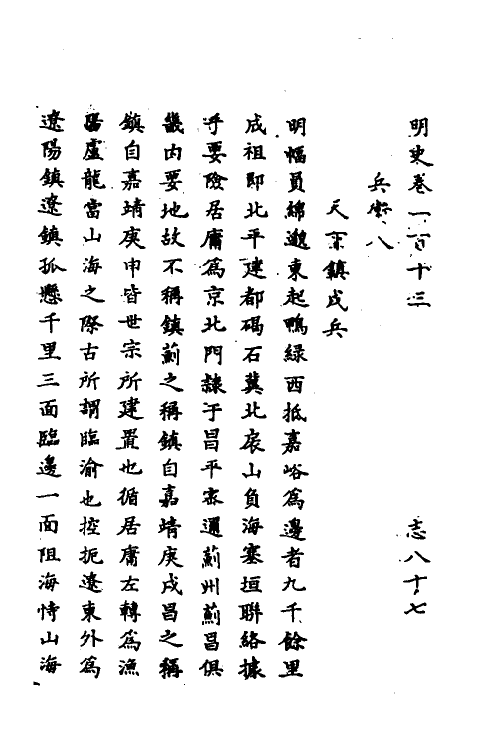 明史卷一百十三　志八十七
兵衛八
天下鎮戍兵
明幅員綿邈東起鴨綠西抵嘉峪為邊者九千餘里
成祖即北平建都碣石冀北扆山負海塞垣聯絡據
乎要險居庸為京北門隸于昌平密邇薊州薊昌俱
畿内要地故不稱鎮薊之稱鎮自嘉靖庚戌昌之稱
鎮自嘉靖庚申皆世宗所建置也循居庸左轉為漁
陽盧龍當山海之際古所謂臨渝也控扼遼東外為
遼陽鎮遼鎮孤懸千里三面臨邊一面阻海恃山海